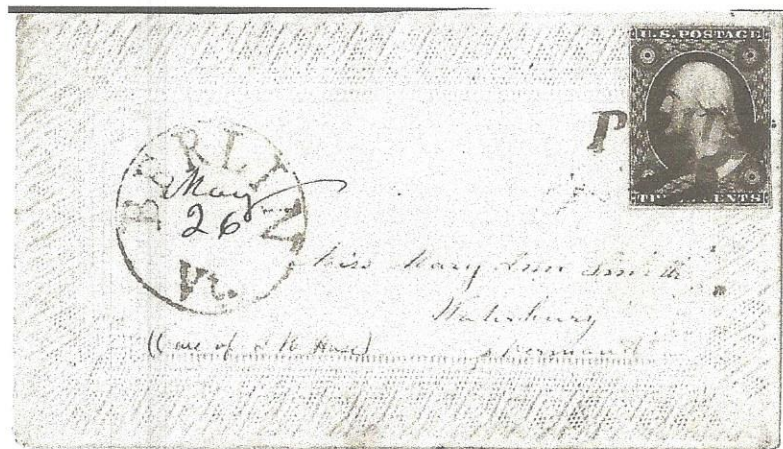 U.S. POSTAGE
P
THREE CENTS
BERLIN
May
26
Vt.
Miss Mary Ann Smith
Waterbury
Vermont
(Care of